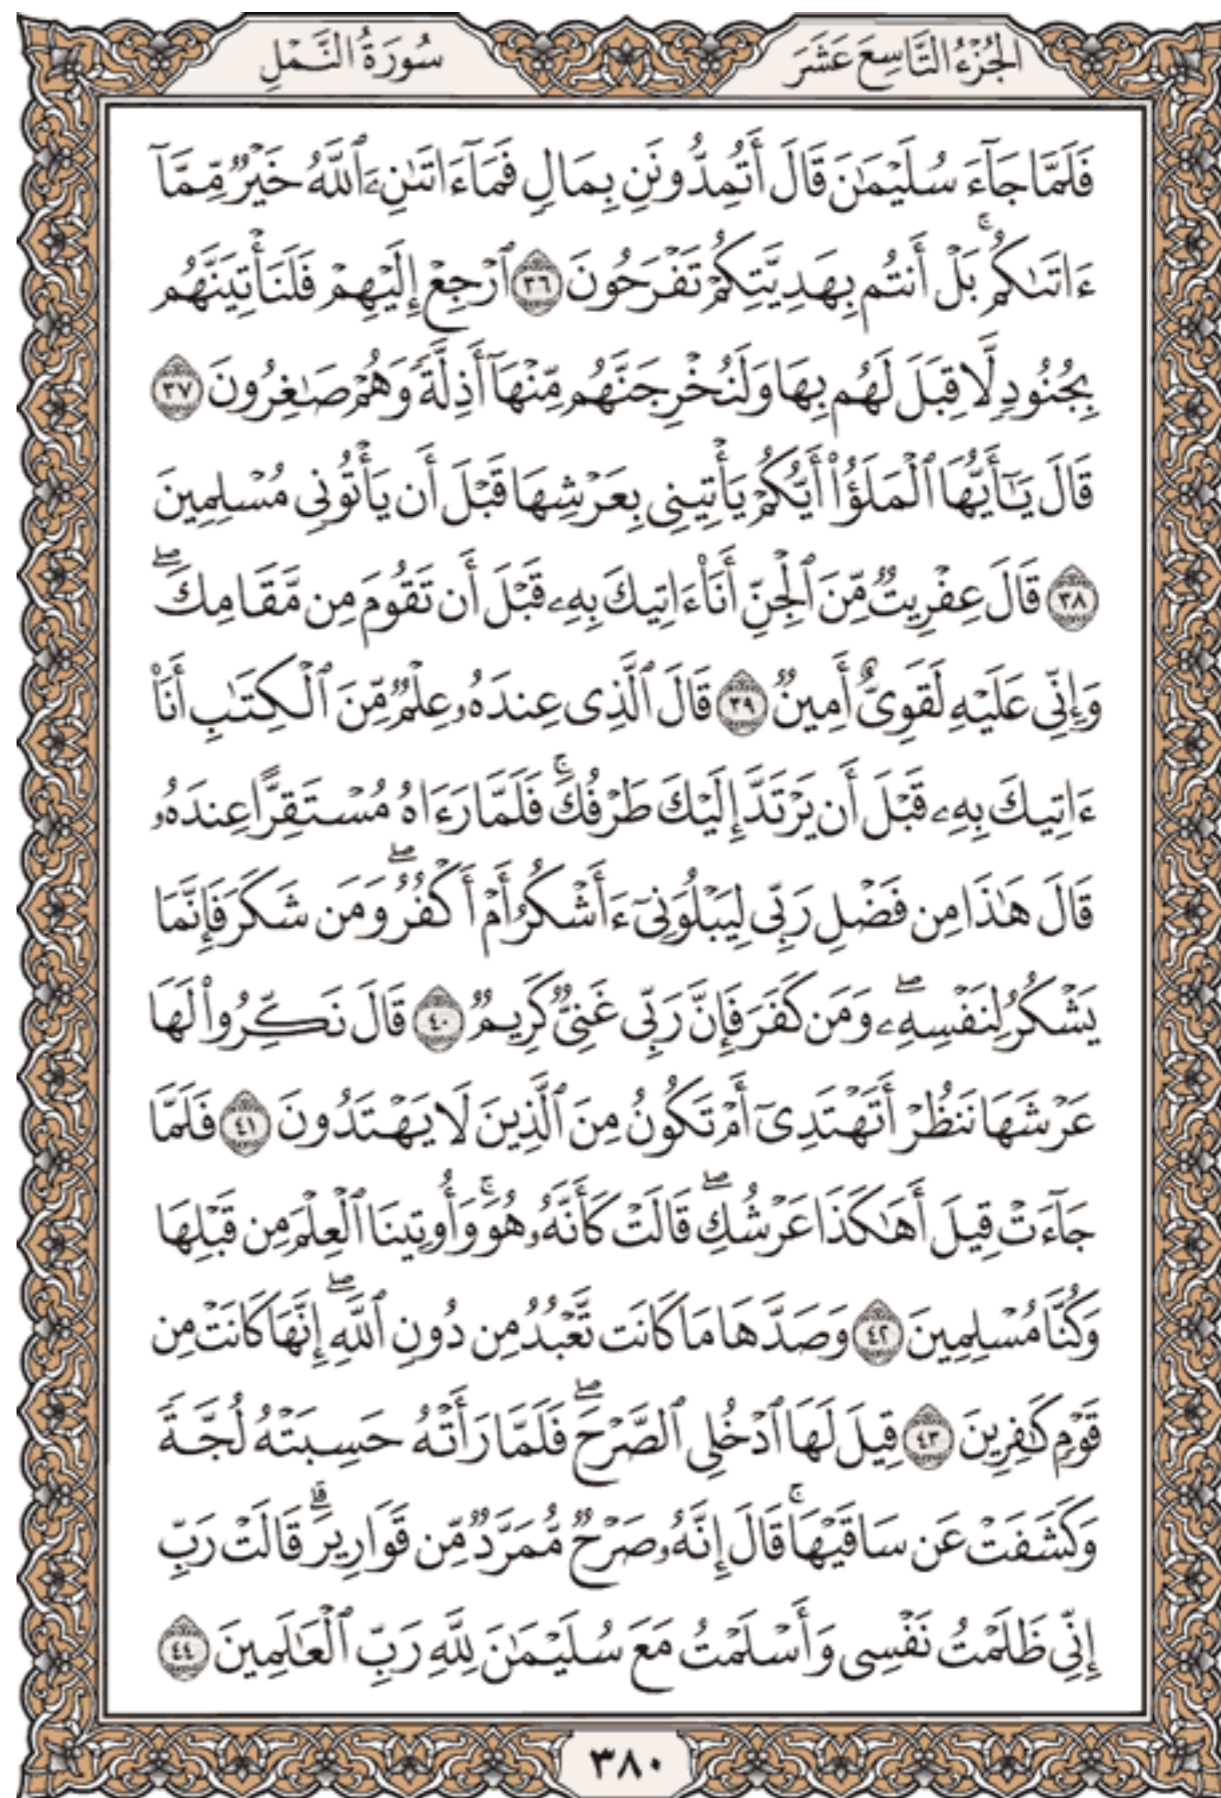 الجُزْءُ التَّاسِعَ عَشَرَ
سُورَةُ النَّمْلِ
فَلَمَّا جَآءَ سُلَيْمَٰنَ قَالَ أَتُمِدُّونَنِ بِمَالٖ فَمَآ ءَاتَىٰنِۦَ ٱللَّهُ خَيْرٞ مِّمَّآ
ءَاتَىٰكُمۚ بَلْ أَنتُم بِهَدِيَّتِكُمْ تَفْرَحُونَ ٣٦ ٱرْجِعْ إِلَيْهِمْ فَلَنَأْتِيَنَّهُم
بِجُنُودٖ لَّا قِبَلَ لَهُم بِهَا وَلَنُخْرِجَنَّهُم مِّنْهَآ أَذِلَّةٗ وَهُمْ صَٰغِرُونَ ٣٧
قَالَ يَٰٓأَيُّهَا ٱلْمَلَؤُاْ أَيُّكُمْ يَأْتِينِى بِعَرْشِهَا قَبْلَ أَن يَأْتُونِى مُسْلِمِينَ
٣٨ قَالَ عِفْرِيتٞ مِّنَ ٱلْجِنِّ أَنَا۠ ءَاتِيكَ بِهِۦ قَبْلَ أَن تَقُومَ مِن مَّقَامِكَۖ
وَإِنِّى عَلَيْهِ لَقَوِىٌّ أَمِينٞ ٣٩ قَالَ ٱلَّذِى عِندَهُۥ عِلْمٞ مِّنَ ٱلْكِتَٰبِ أَنَا۠
ءَاتِيكَ بِهِۦ قَبْلَ أَن يَرْتَدَّ إِلَيْكَ طَرْفُكَۚ فَلَمَّا رَءَاهُ مُسْتَقِرًّا عِندَهُۥ
قَالَ هَٰذَا مِن فَضْلِ رَبِّى لِيَبْلُوَنِىٓ ءَأَشْكُرُ أَمْ أَكْفُرُۖ وَمَن شَكَرَ فَإِنَّمَا
يَشْكُرُ لِنَفْسِهِۦۖ وَمَن كَفَرَ فَإِنَّ رَبِّى غَنِىّٞ كَرِيمٞ ٤٠ قَالَ نَكِّرُواْ لَهَا
عَرْشَهَا نَنظُرْ أَتَهْتَدِىٓ أَمْ تَكُونُ مِنَ ٱلَّذِينَ لَا يَهْتَدُونَ ٤١ فَلَمَّا
جَآءَتْ قِيلَ أَهَٰكَذَا عَرْشُكِۖ قَالَتْ كَأَنَّهُۥ هُوَۚ وَأُوتِينَا ٱلْعِلْمَ مِن قَبْلِهَا
وَكُنَّا مُسْلِمِينَ ٤٢ وَصَدَّهَا مَا كَانَت تَّعْبُدُ مِن دُونِ ٱللَّهِۖ إِنَّهَا كَانَتْ مِن
قَوْمٖ كَٰفِرِينَ ٤٣ قِيلَ لَهَا ٱدْخُلِى ٱلصَّرْحَۖ فَلَمَّا رَأَتْهُ حَسِبَتْهُ لُجَّةٗ
وَكَشَفَتْ عَن سَاقَيْهَاۚ قَالَ إِنَّهُۥ صَرْحٞ مُّمَرَّدٞ مِّن قَوَارِيرَۗ قَالَتْ رَبِّ
إِنِّى ظَلَمْتُ نَفْسِى وَأَسْلَمْتُ مَعَ سُلَيْمَٰنَ لِلَّهِ رَبِّ ٱلْعَٰلَمِينَ ٤٤
٣٨٠